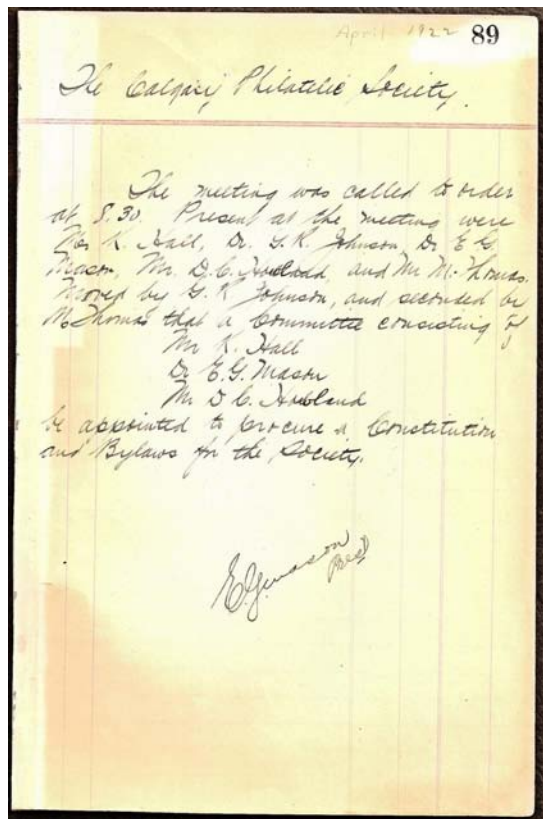 April 1922 89
The Calgary Philatelic Society.
The meeting was called to order
at 8.30. Present at the meeting were
Mr K. Hall, Dr. G. R. Johnson, Dr E G.
Mason, Mr. D. C. Howland, and Mr M. Thomas.
Moved by G. R Johnson, and seconded by
M. Thomas that a Committee consisting of
Mr K. Hall
Dr E. G. Mason
Mr D C. Howland
be appointed to procure a Constitution
and Bylaws for the Society.
E.G. Mason
Pres